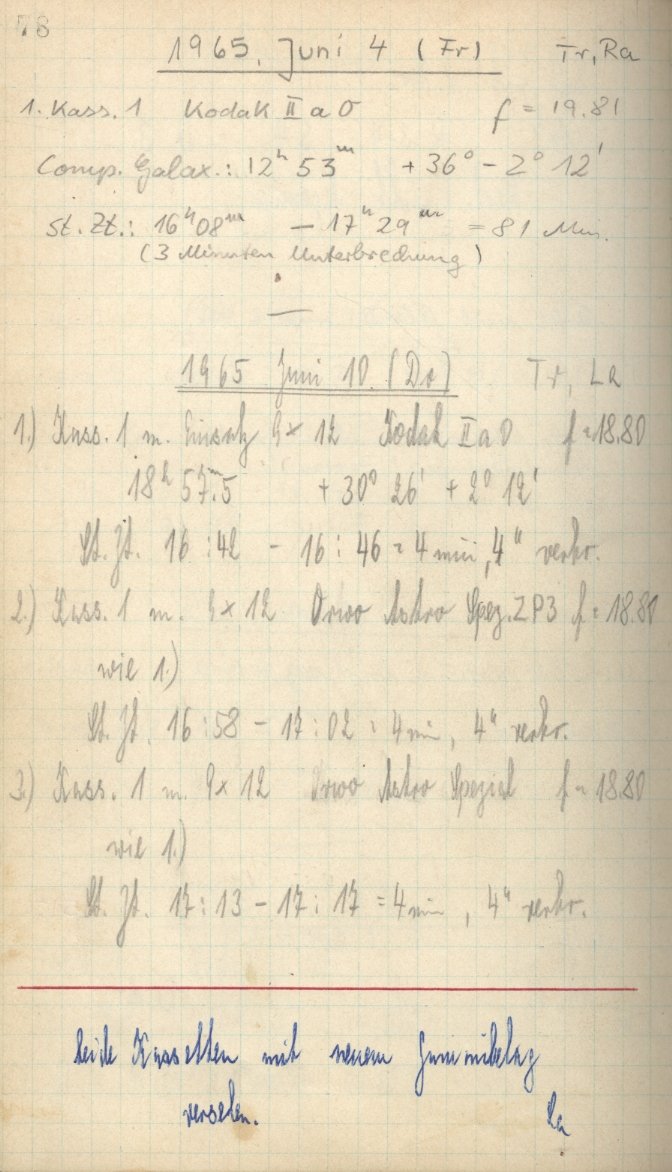 78
1965. Juni 4 (Fr) Tr, Ra
1. Kass. 1 Kodak II a O f = 19.81
Comp. Galax.: 12ʰ 53ᵐ + 36° - 2° 12'
St. Zt.: 16ʰ 08ᵐ — 17ʰ 29ᵐ = 81 Min.
(3 Minuten Unterbrechung)
—
1965 Juni 10. (Do) Tr, La
1.) Kass. 1 m. Einsatz 9 x 12 Kodak II a O f = 18.80
18ʰ 57ᵐ.5 + 30° 26' + 2° 12'
St. Zt. 16:42 - 16:46 = 4 min, 4" verkr.
2.) Kass. 1 m. 9 x 12 Orwo Astro Spez. ZP3 f = 18.80
wie 1.)
St. Zt. 16:58 - 17:02 = 4 min, 4" verkr.
3.) Kass. 1 m. 9 x 12 Orwo Astro Spezial f = 18.80
wie 1.)
St. Zt. 17:13 - 17:17 = 4 min, 4" verkr.
beide Kassetten mit neuem Gummibelag
versehen. La